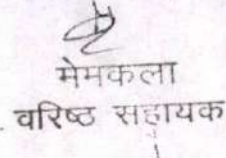 मेमकला
वरिष्ठ सहायक